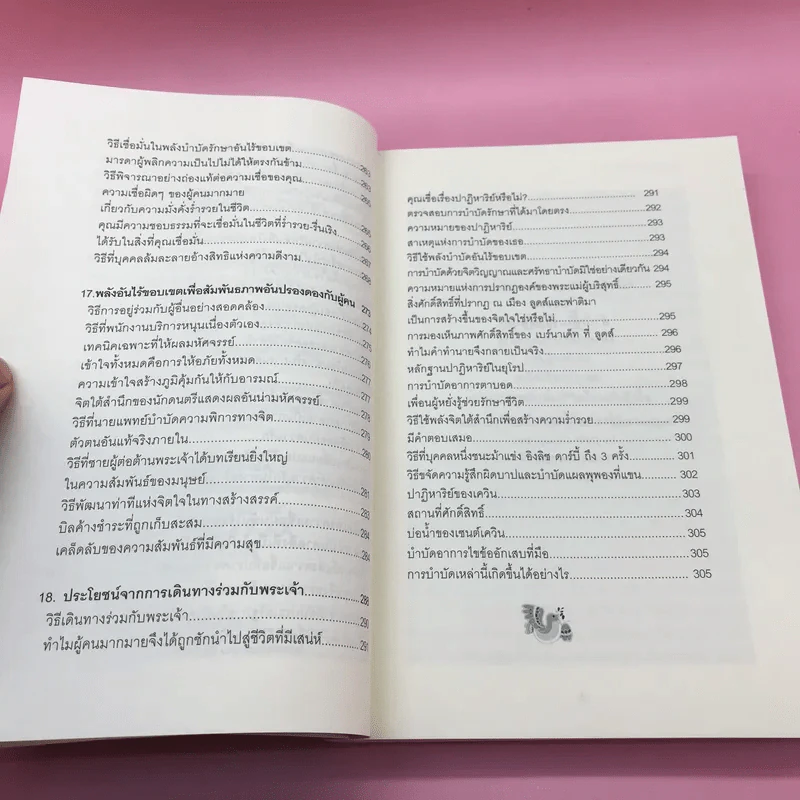 วิธีเชื่อมั่นในพลังบำบัดรักษาอันไร้ขอบเขต
มารดาผู้พลิกความเป็นไปไม่ได้ให้ตรงกันข้าม
วิธีพิจารณาอย่างถ่องแท้ต่อความเชื่อของคุณ
ความเชื่อผิดๆ ของผู้คนมากมาย
เกี่ยวกับความมั่งคั่งร่ำรวยในชีวิต
คุณมีความชอบธรรมที่จะเชื่อมั่นในชีวิตที่ร่ำรวย-รื่นเริง
ได้รับในสิ่งที่คุณเชื่อมั่น
วิธีที่บุคคลล้มละลายอ้างสิทธิแห่งความดีงาม
17.พลังอันไร้ขอบเขตเพื่อสัมพันธภาพอันปรองดองกับผู้คน 273
วิธีการอยู่ร่วมกับผู้อื่นอย่างสอดคล้อง 274
วิธีที่พนักงานบริการหนุนเนื่องตัวเอง
เทคนิคเฉพาะที่ให้ผลมหัศจรรย์
เข้าใจทั้งหมดคือการให้อภัยทั้งหมด
ความเข้าใจสร้างภูมิคุ้มกันให้กับอารมณ์ 277
จิตใต้สำนึกของนักดนตรีแสดงผลอันน่ามหัศจรรย์
วิธีที่นายแพทย์บำบัดความพิการทางจิต
ตัวตนอันแท้จริงภายใน
วิธีที่ชายผู้ต่อต้านพระเจ้าได้บทเรียนยิ่งใหญ่
ในความสัมพันธ์ของมนุษย์ 281
วิธีพัฒนาท่าทีแห่งจิตใจในทางสร้างสรรค์
บิลค้างชำระที่ถูกเก็บสะสม 284
เคล็ดลับของความสัมพันธ์ที่มีความสุข 284
18. ประโยชน์จากการเดินทางร่วมกับพระเจ้า 288
วิธีเดินทางร่วมกับพระเจ้า 290
ทำไมผู้คนมากมายจึงได้ถูกชักนำไปสู่ชีวิตที่มีเสน่ห์ 291
คุณเชื่อเรื่องปาฏิหาริย์หรือไม่? 291
ตรวจสอบการบำบัดรักษาที่ได้มาโดยตรง 292
ความหมายของปาฏิหาริย์ 293
สาเหตุแห่งการบำบัดของเธอ 293
วิธีใช้พลังบำบัดอันไร้ขอบเขต 294
การบำบัดด้วยจิตวิญญาณและศรัทธาบำบัดมิใช่อย่างเดียวกัน 294
ความหมายแห่งการปรากฏองค์ของพระแม่ผู้บริสุทธิ์ 295
สิ่งศักดิ์สิทธิ์ที่ปรากฏ ณ เมือง ลูดส์และฟาติมา
เป็นการสร้างขึ้นของจิตใจใช่หรือไม่ 295
การมองเห็นภาพศักดิ์สิทธิ์ของ เบร์นาเด็ท ที่ ลูดส์ 296
ทำไมคำทำนายจึงกลายเป็นจริง 296
หลักฐานปาฏิหาริย์ในยุโรป 297
การบำบัดอาการตาบอด 298
เพื่อนผู้หยั่งรู้ช่วยรักษาชีวิต 299
วิธีใช้พลังจิตใต้สำนึกเพื่อสร้างความร่ำรวย 299
มีคำตอบเสมอ 300
วิธีที่บุคคลหนึ่งชนะม้าแข่ง อิงลิช ดาร์บี้ ถึง 3 ครั้ง 301
วิธีขจัดความรู้สึกผิดบาปและบำบัดแผลพุพองที่แขน 302
ปาฏิหาริย์ของเควิน 303
สถานที่ศักดิ์สิทธิ์ 304
บ่อน้ำของเซนต์เควิน 305
บำบัดอาการไขข้ออักเสบที่มือ 305
การบำบัดเหล่านี้เกิดขึ้นได้อย่างไร 305